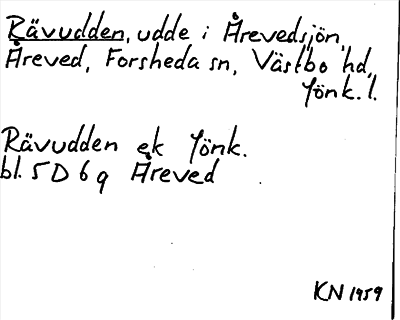 Rävudden, udde i Årevedsjön,
Åreved, Forsheda sn, Västbo hd,
Jönk. l.
Rävudden ek Jönk.
bl. 5 D 6 g Åreved
KN 1959